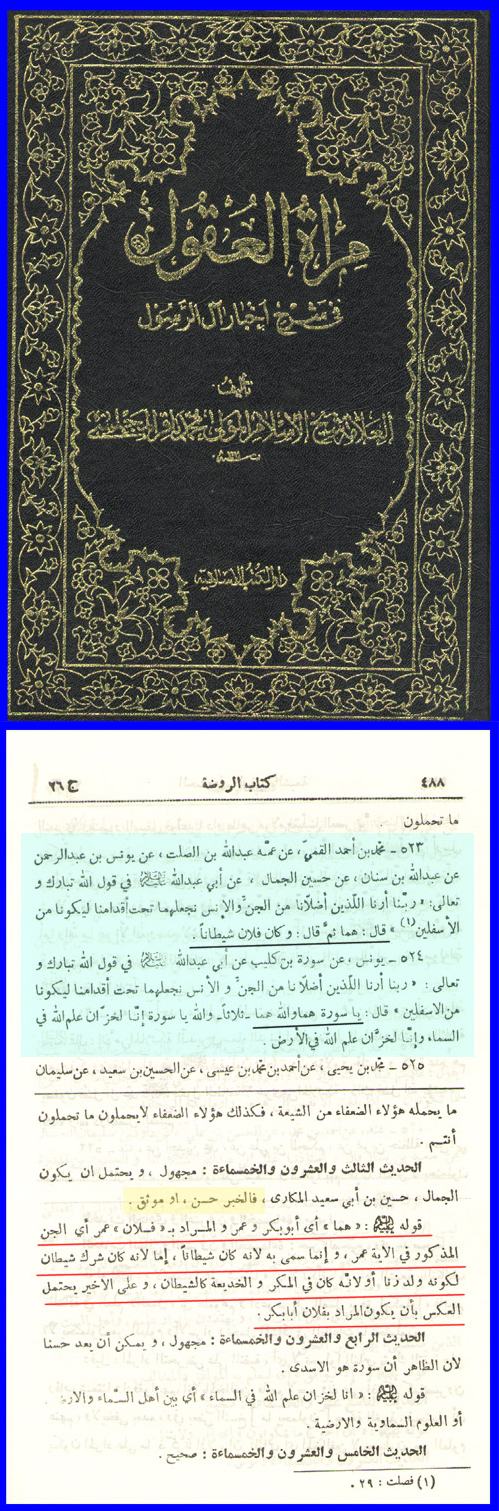 مرآة العقول
في شرح أخبار آل الرسول
تأليف
العلامة شيخ الإسلام المولى محمد باقر المجلسي
دار الكتب الإسلامية
٤٨٨ كتاب الروضة ج ٢٦
ما تحملون .
٥٢٣ ـ محمد بن أحمد القمي ، عن عمّه عبدالله بن الصلت ، عن يونس بن عبدالرحمن
عن عبدالله بن سنان ، عن حسين الجمال ، عن أبي عبدالله عليه السلام في قول الله تبارك و
تعالى: « ربّنا أرنا اللّذين أضلاّنا من الجنّ والإنس نجعلهما تحت أقدامنا ليكونا من
الأسفلين (١) » قال : هما ثمّ قال : وكان فلان شيطاناً .
٥٢٤ ـ يونس ، عن سورة بن كليب عن أبي عبدالله عليه السلام في قول الله تبارك و
تعالى : « ربنا أرنا اللّذين أضلاّنا من الجنّ و الأنس نجعلهما تحت أقدامنا ليكونا
من الاسفلين » قال : يا سورة هما والله هما ـ ثلاثاً ـ والله يا سورة إنّا لخزّان علم الله في
السماء وإنّا لخزّان علم الله في الأرض .
٥٢٥ ـ محمد بن يحيى ، عن أحمد بن محمد بن عيسى ، عن الحسين بن سعيد ، عن سليمان
ما يحمله هؤلاء الضعفاء من الشيعة ، فكذلك هؤلاء الضعفاء لايحملون ما تحملون
أنتم .
الحديث الثالث والعشرون والخمسماءة : مجهول ، و يحتمل ان يكون
الجمال ، حسين بن أبي سعيد المكارى ، فالخبر حسن ، او موثق .
قوله عليه السلام : « هما » أي أبوبكر وعمر و المراد بـ « فلان » عمر أي الجن
المذكور في الآية عمر ، و إنما سمى به لانه كان شيطاناً ، إما لانه كان شرك شيطان
لكونه ولد زنا أو لانّه كان في المكر و الخديعة كالشيطان ، و على الاخير يحتمل
العكس بأن يكون المراد بفلان أبابكر .
الحديث الرابع والعشرون والخمسماءة : مجهول ، و يمكن أن يعد حسنا
لان الظاهر أن سورة هو الاسدى .
قوله عليه السلام : « انا لخزان علم الله في السماء » أي بين أهل السّماء والارض .
أو العلوم السماوية والارضية .
الحديث الخامس والعشرون والخمسماءة : صحيح .
(١) فصلت : ٢٩ .